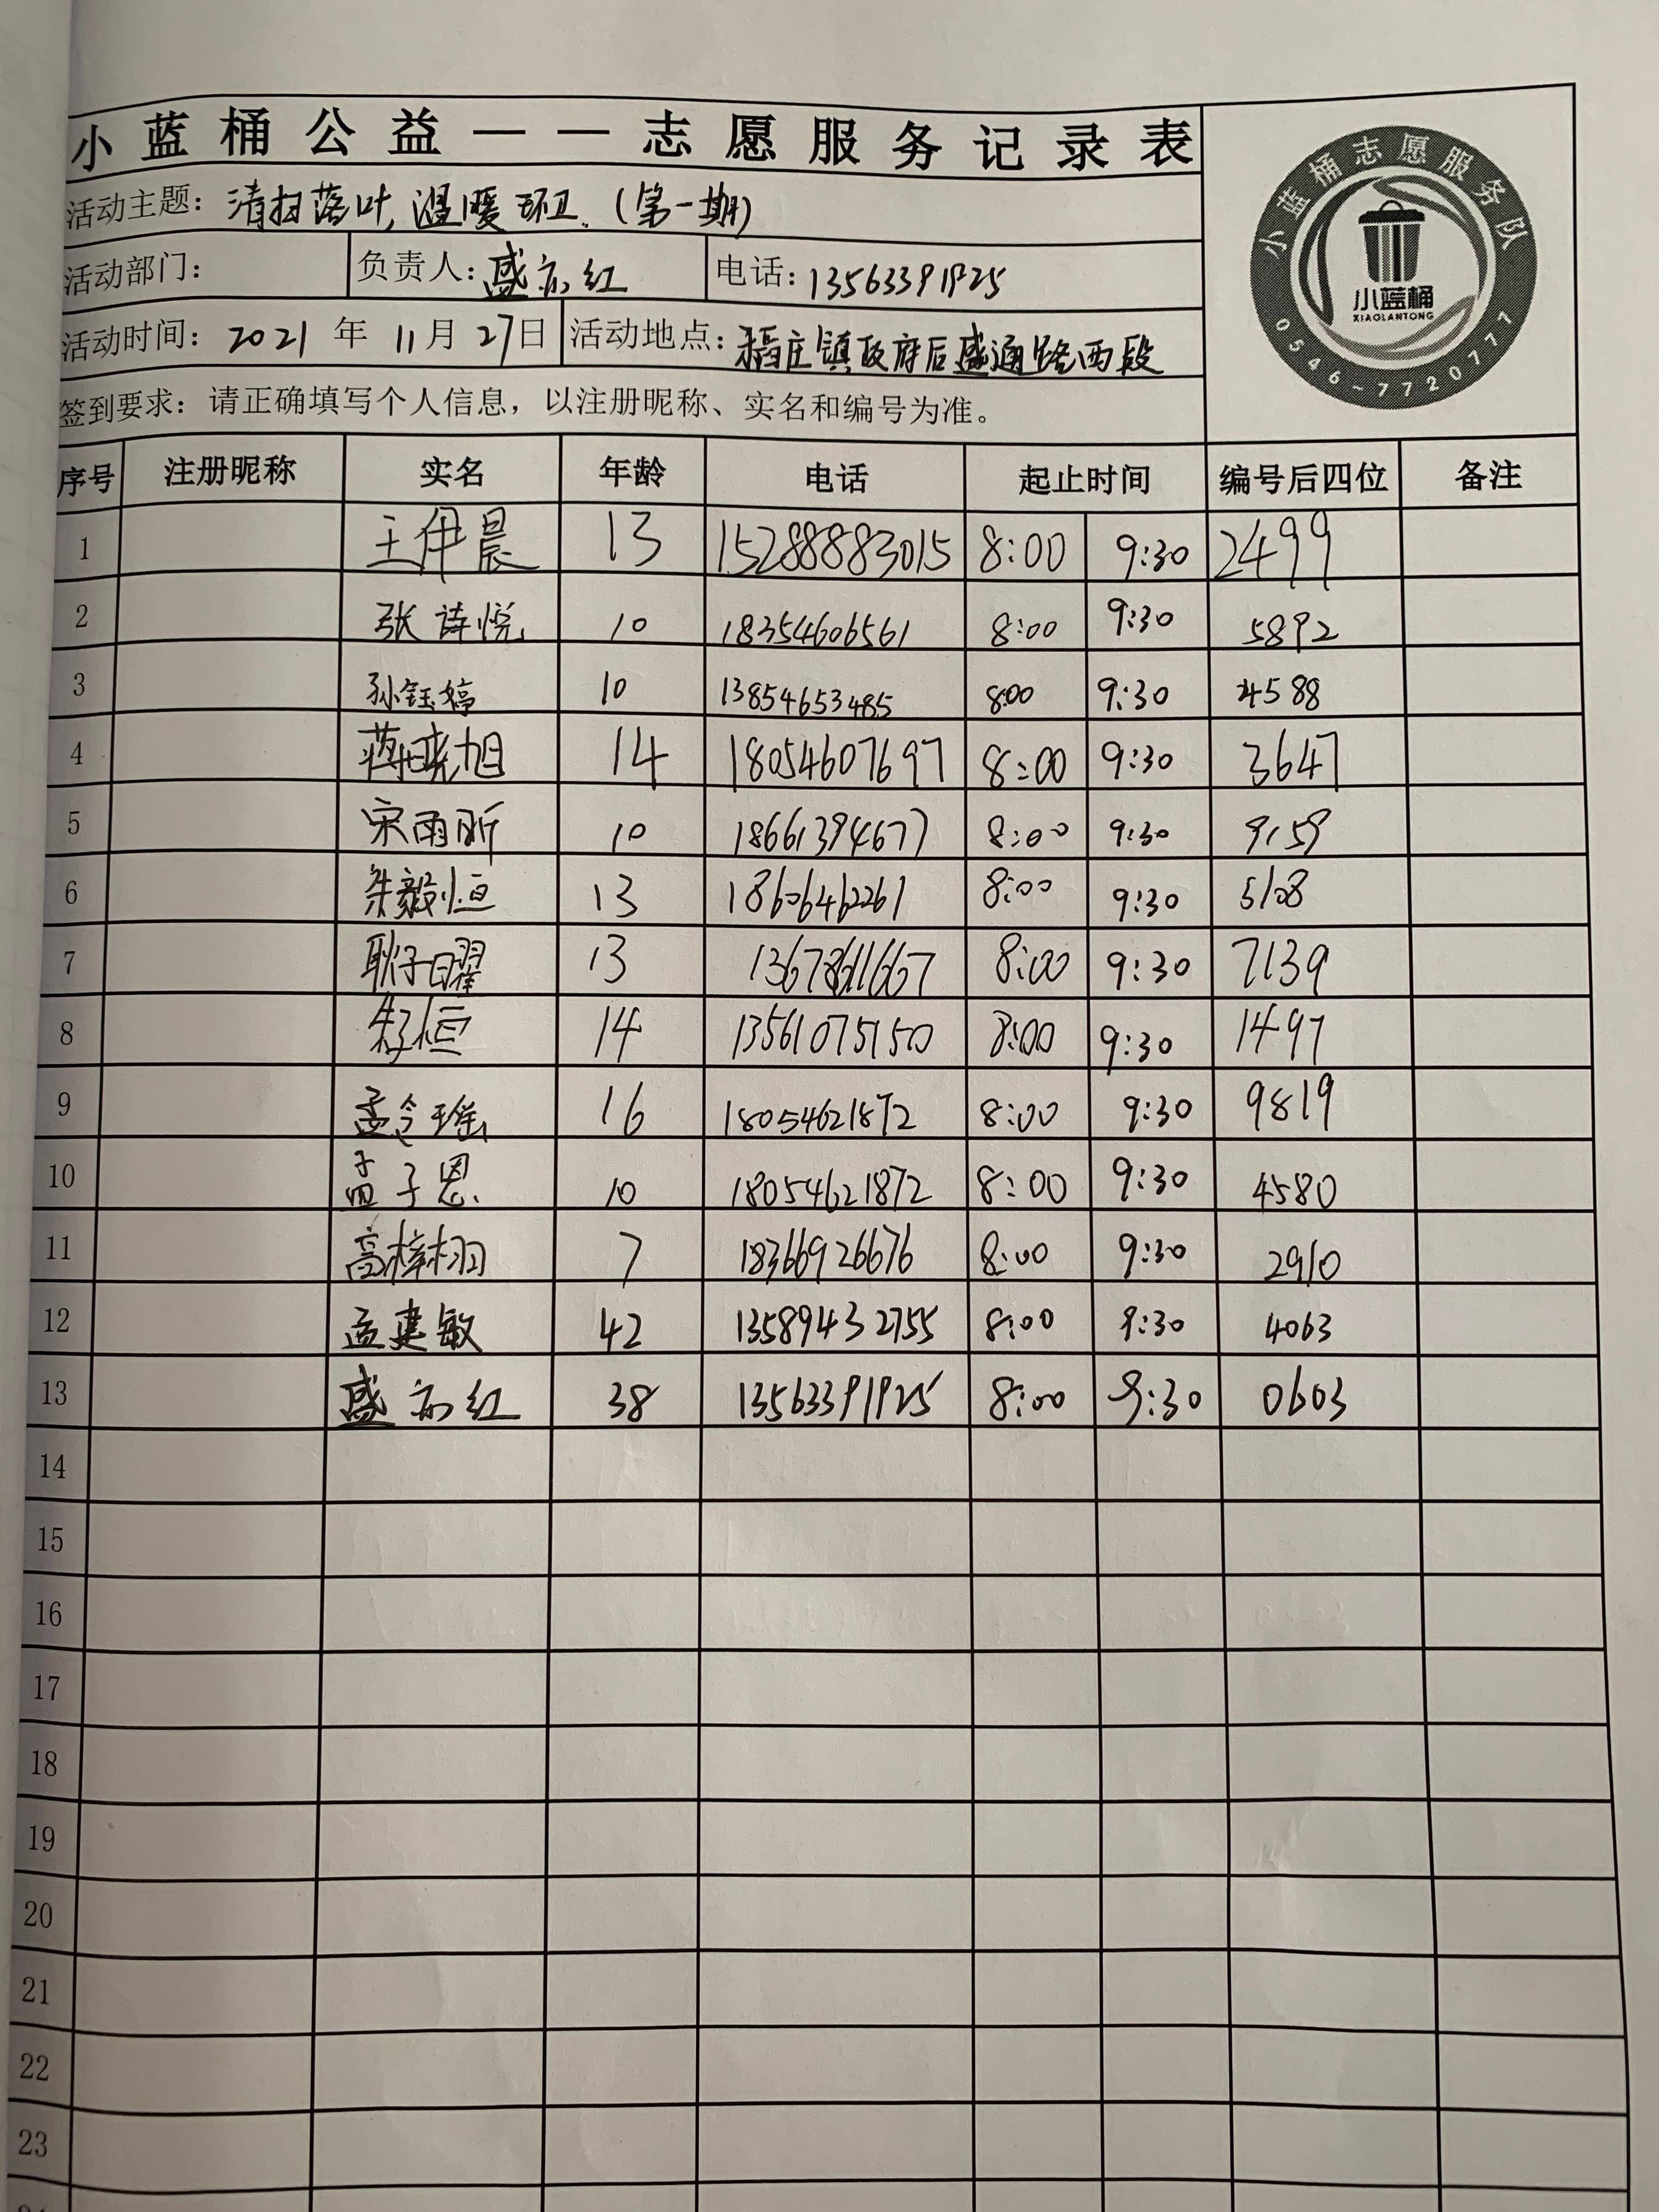 小蓝桶公益——志愿服务记录表
活动主题：清扫落叶,温暖环卫.(第一期)
活动部门： 负责人：盛亦红 电话：13563391925
活动时间：2021年11月27日 活动地点：稻庄镇政府后盛通路西段
签到要求：请正确填写个人信息，以注册昵称、实名和编号为准。
小蓝桶志愿服务队
小蓝桶
XIAOLANTONG
0546-7720777
序号 注册昵称 实名 年龄 电话 起止时间 编号后四位 备注
1 王伊晨 13 15288883015 8:00 9:30 2499
2 张诗悦 10 18354606561 8:00 9:30 5892
3 孙钰婷 10 13854653485 8:00 9:30 4588
4 蒋晓旭 14 18054607697 8:00 9:30 3647
5 宋雨昕 10 18661394677 8:00 9:30 9159
6 朱毅恒 13 18606462261 8:00 9:30 5108
7 耿子曜 13 8:00 9:30 7139
8 朱子恒 14 13561075150 8:00 9:30 1497
9 孟令瑶 16 18054621872 8:00 9:30 9819
10 孟子恩 10 18054621872 8:00 9:30 4580
11 高梓栩 7 18366926676 8:00 9:30 2910
12 孟建敏 42 13589432755 8:00 9:30 4063
13 盛亦红 38 13563391925 8:00 9:30 0603
14
15
16
17
18
19
20
21
22
23